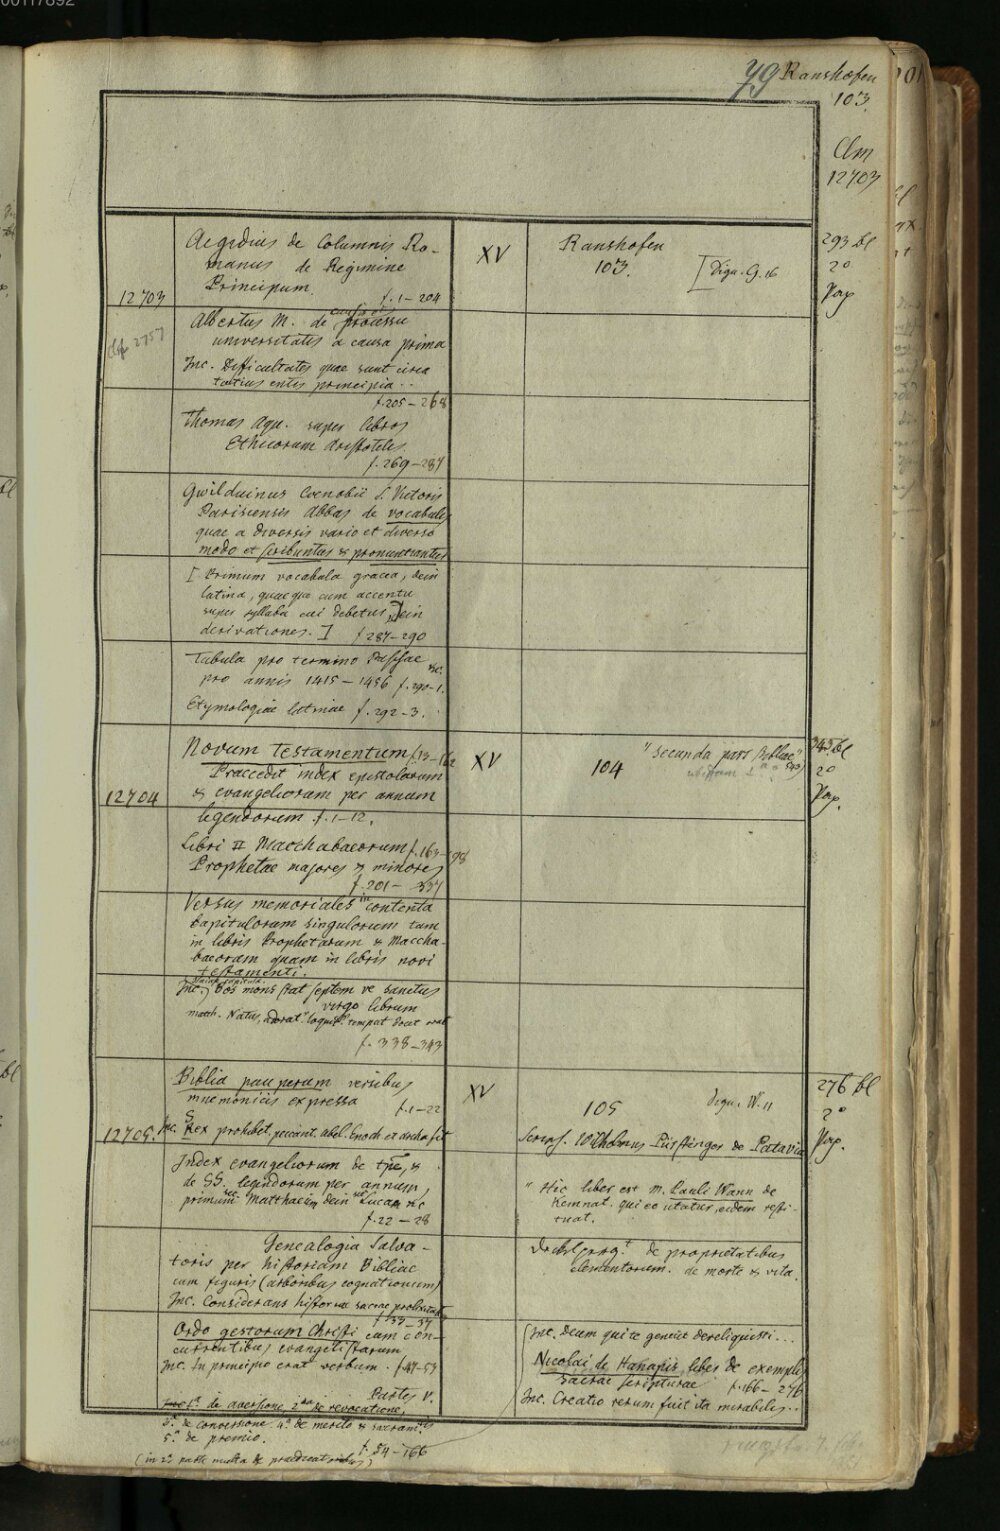 00117892
79 Ranshofen
103.
Clm
12703
Aegidius de Columnis Ro-
manus de Regimine
Principum.
f. 1 – 204
12703
XV
Ranshofen
103.
[ Sign. G. 16
293 bl
2°
Pap
Albertus M. de causis et processu
universitatis a causa prima
Inc. Difficultates quae sunt circa
totius entis principia ..
f. 205 – 268
Thomas Aqu. super libros
Ethicorum Aristotelis.
f. 269 – 287
Gwilduinus Coenobii S. Victoris
Parisiensis Abbas de vocabulis
quae a diversis vario et diverso
modo et scribuntur & pronuntiantur
[ Primum vocabula graeca, dein
latina, quaeque cum accentu
super syllaba cui debetur, dein
derivationes. ] f 287–290
Tabula pro termino Paschae &c.
pro annis 1415 – 1456 f. 290–1.
Etymologiae latinae f. 292–3.
Novum Testamentum f. 13–162
Praecedit index epistolarum
& evangeliorum per annum
legendorum f. 1–12.
12704
XV
104
"Secunda pars Bibliae"
343 bl
2°
Pap.
Libri II Macchabaeorum f. 163–198
Prophetae majores & minores
f. 201 – 337
Versus memoriales in contenta
capitulorum singulorum tam
in libris Prophetarum & Maccha-
baeorum quam in libris novi
testamenti.
Inc. Bos mons stat septem ve sanctus
virgo librum
Matth. Natus, adorat
f. 338–343
Biblia pauperum versibus
mnemonicis expressa
f. 1–22
12705.
Inc. Sex prohibet, peccant, abel. Enoch et archa fit
XV
105
Sign. W. 11
276 bl
2°
Pap.
Script. Wilhelmus Pürstinger de Patavia
Index evangeliorum de tpe, &
de SS. legendorum per annum,
primum sec. Matthaeum dein sec. Lucam &c
f. 22 – 28
" Hic liber est M. Pauli Wann de
Kemnat. qui eo utatur, eidem resti-
tuat.
Genealogia Salva-
toris per historiam Bibliae
cum figuris (arboribus cognationum)
Inc. Considerans historiae sacrae prolixitatem
f 39–37
de proprietatibus
elementorum. de morte & vita.
Ordo gestorum Christi cum con-
currentibus evangelistarum
Inc. In principio erat verbum. f. 47–53
Partes V.
1a. de aversione, 2da de revocatione,
3a. de conversione 4a. de merito & sacram.
5a. de premio. f. 54–166
(in 2a parte multa de praedicatoribus)
Inc. Deum qui te genuit dereliquisti...
Nicolai de Hanapis liber de exemplis
sacrae scripturae f. 166–276
Inc. Creatio rerum fuit ita mirabilis..